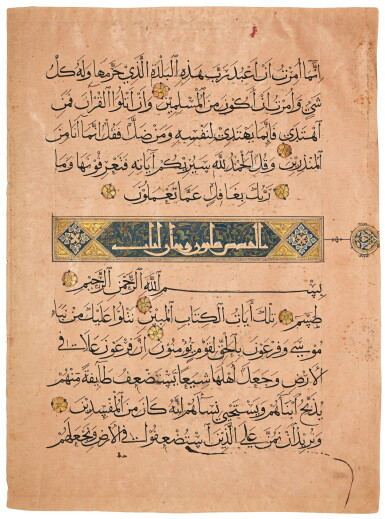 انما امرت ان اعبد رب هذه البلدة الذي حرمها وله كل
شي وامرت ان اكون من المسلمين وان اتلوا القرآن فمن
اهتدى فانما يهتدي لنفسه ومن ضل فقل انما انا من
المنذرين وقل الحمد لله سيريكم آياته فتعرفونها وما
ربك بغافل عما تعملون
القصص ثمانون وثمان آيات
بسم الله الرحمن الرحيم
طسم تلك آيات الكتاب المبين نتلوا عليك من نبإ
موسى وفرعون بالحق لقوم يؤمنون ان فرعون علا في
الارض وجعل اهلها شيعا يستضعف طايفة منهم
يذبح ابناءهم ويستحيي نساءهم انه كان من المفسدين
ونريد ان نمن على الذين استضعفوا في الارض ونجعلهم